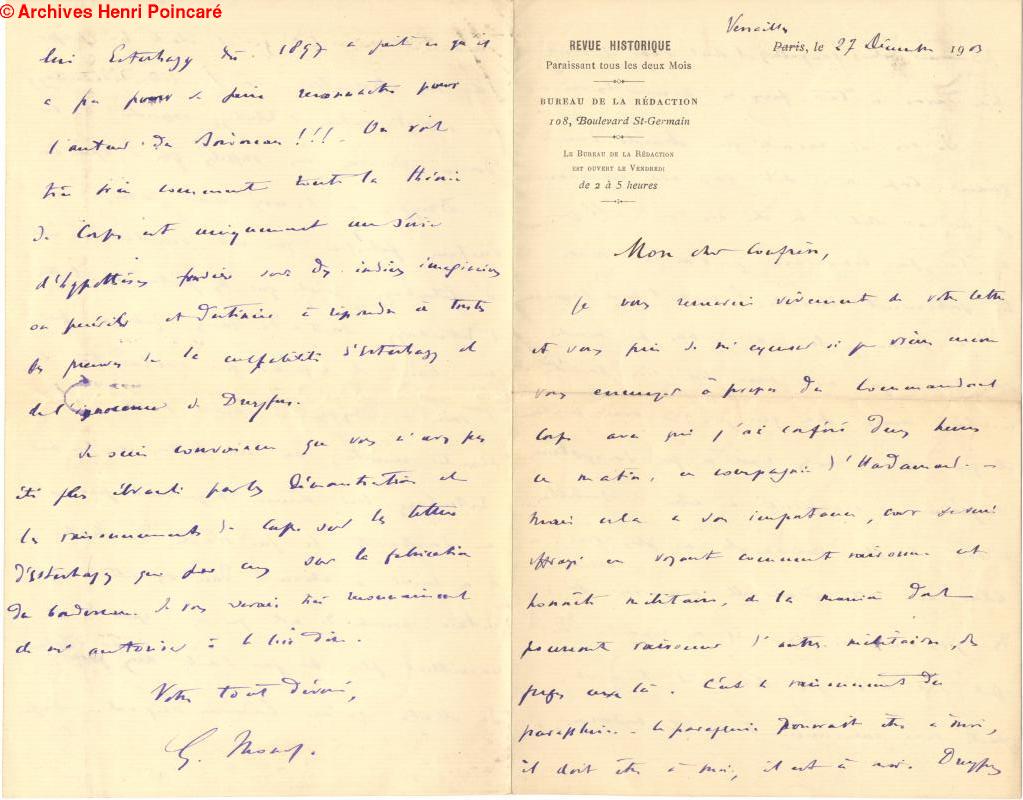 © Archives Henri Poincaré
REVUE HISTORIQUE
Paraissant tous les deux Mois
BUREAU DE LA RÉDACTION
108, Boulevard St-Germain
LE BUREAU DE LA RÉDACTION
EST OUVERT LE VENDREDI
de 2 à 5 heures
Versailles
Paris, le 27 Décembre 1903
Mon cher Confrère,
Je vous remercie vivement de votre lettre
et vous prie de m'excuser si je viens encore
vous ennuyer à propos du Commandant
Corps avec qui j'ai conféré deux heures
ce matin, en compagnie d'Hadamard. –
Mais cela a son importance, car
effrayé en voyant comment raisonne cet
honnête militaire, de la manière dont
peuvent raisonner d'autres militaires, des
juges ceux là. C'est le raisonnement du
parapluie. Le parapluie pourrait être à moi,
il doit être à moi, il est à moi. Dreyfus
lui Esterhazy dès 1897 a fait ce qu'il
a pu pour se faire reconnaître pour
l'auteur du Bordereau !!! On voit
très bien comment toute la théorie
de Corps est uniquement une série
d'hypothèses fondées sur des indices imaginaires
ou puérils et destinées à répondre à toutes
les preuves de la culpabilité d'Esterhazy et
de l'innocence de Dreyfus.
Je suis convaincu que vous n'avez pas
été plus ébranlé par les démonstrations et
les raisonnements de Corps sur les lettres
d'Esterhazy que par ceux sur la fabrication
du bordereau. Je vous serais très reconnaissant
de m'autoriser à le lui dire.
Votre tout dévoué,
G. Monod.